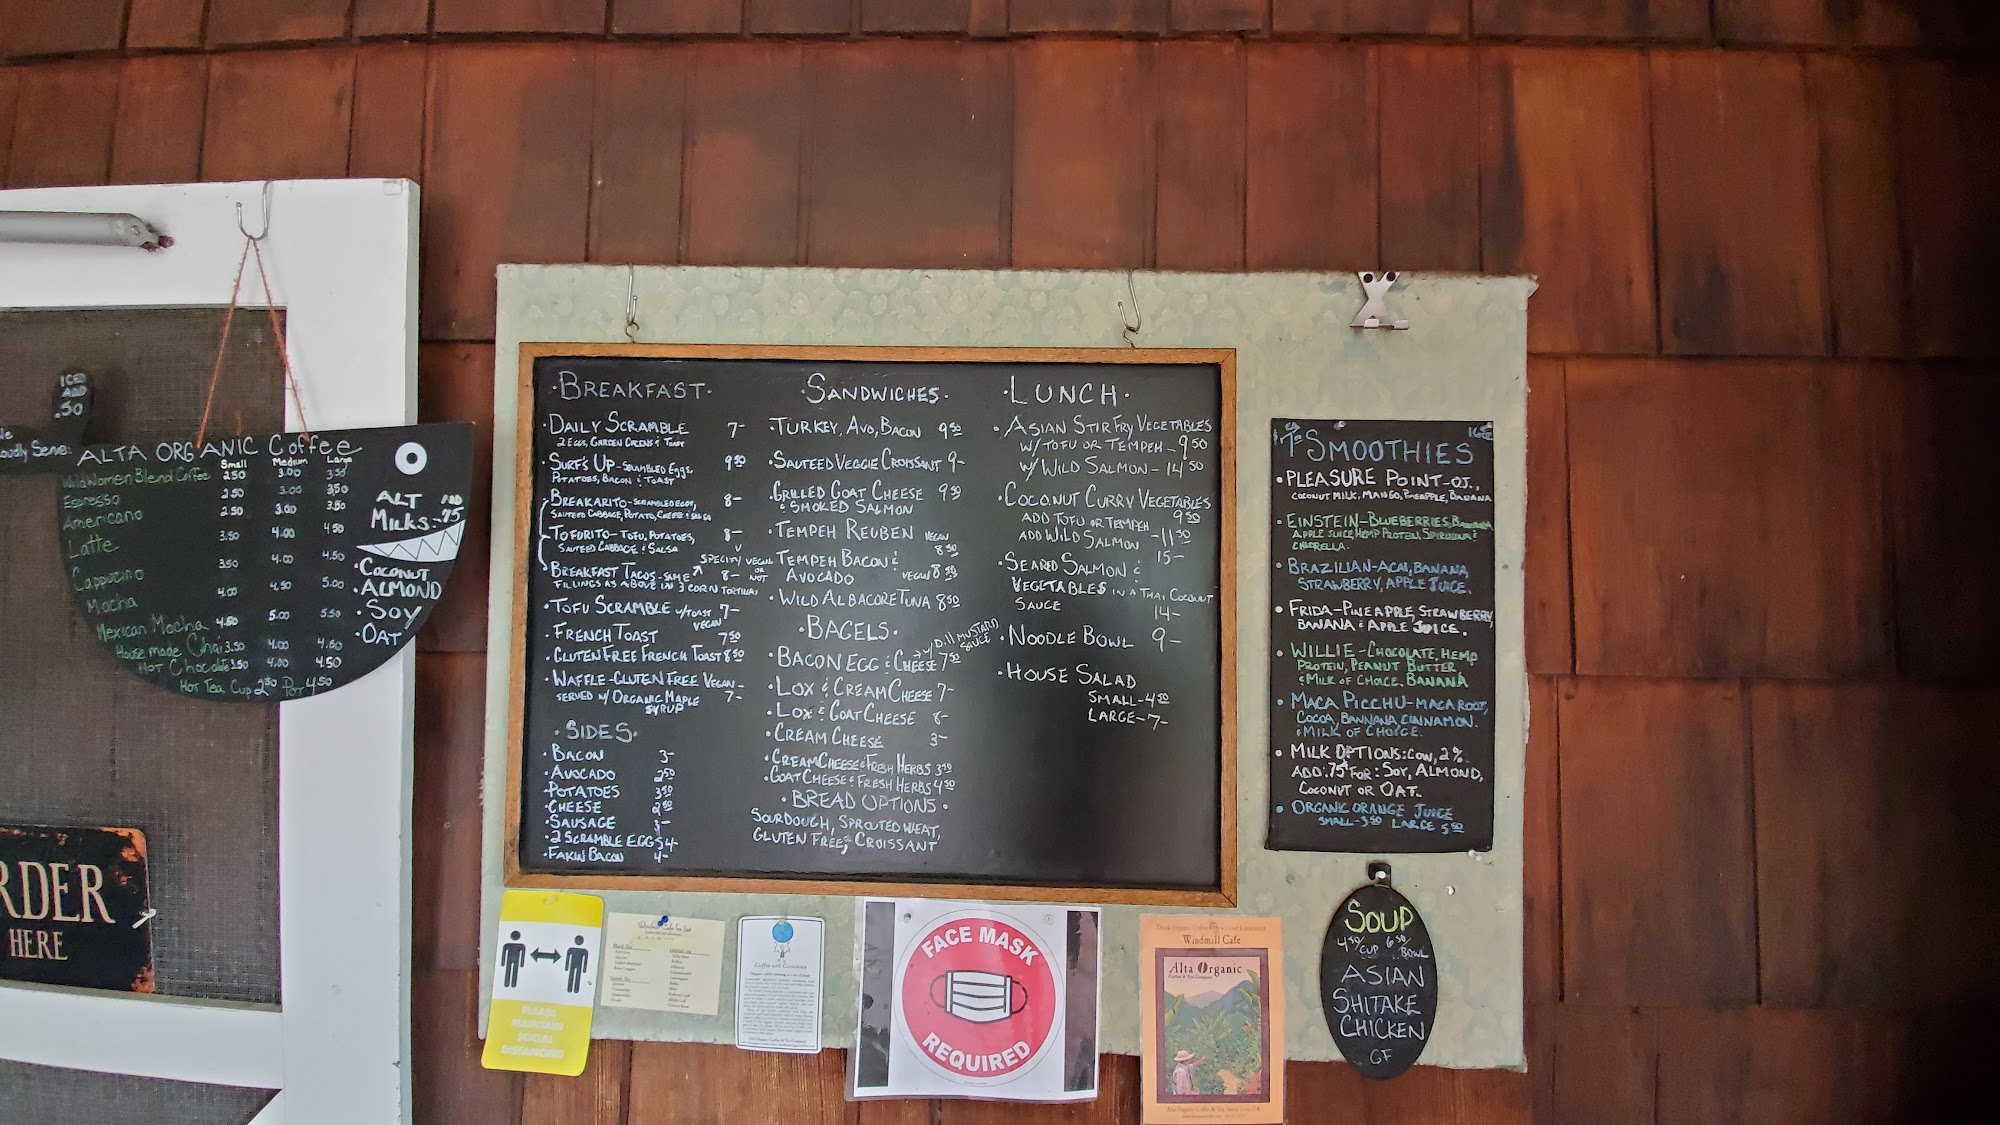 ICED
ADD
.50
oudly Serve:
ALTA ORGANIC Coffee
Small Medium Large
Wild Women Blend Coffee 2.50 3.00 3.50
Espresso 2.50 3.00 3.50
Americano 2.50 3.00 3.50
Latte 3.50 4.00 4.50
Cappucino 3.50 4.00 4.50
Mocha 4.00 4.50 5.00
Mexican Mocha 4.50 5.00 5.50
House made Chai 3.50 4.00 4.50
Hot Chocolate 3.50 4.00 4.50
Hot Tea Cup 2.50 Pot 4.50
ALT ADD
MILKS .75
• COCONUT
• ALMOND
• SOY
• OAT
RDER
HERE
• BREAKFAST •
• DAILY SCRAMBLE 7-
2 EGGS, GARDEN GREENS & TOAST
• SURF'S UP - SCRAMBLED EGGS, 9.50
POTATOES, BACON & TOAST
• BREAKARITO - SCRAMBLED EGGS, 8-
SAUTEED CABBAGE, POTATO, CHEESE & SALSA
• TOFURITO - TOFU, POTATOES, 8-
SAUTEED CABBAGE & SALSA V
SPECIFY VEGAN
OR
NOT
• BREAKFAST TACOS - SAME 8-
FILLINGS AS ABOVE IN 3 CORN TORTILLAS
• TOFU SCRAMBLE w/TOAST 7-
VEGAN
• FRENCH TOAST 7.50
• GLUTEN FREE FRENCH TOAST 8.50
• WAFFLE - GLUTEN FREE VEGAN -
SERVED w/ ORGANIC MAPLE 7-
SYRUP
• SIDES •
• BACON 3-
• AVOCADO 2.50
• POTATOES 3.50
• CHEESE 2.50
• SAUSAGE 3-
• 2 SCRAMBLE EGGS 4-
• FAKIN BACON 4-
SANDWICHES •
• TURKEY, AVO, BACON 9.50
• SAUTEED VEGGIE CROISSANT 9-
• GRILLED GOAT CHEESE 9.50
& SMOKED SALMON
• TEMPEH REUBEN VEGAN
8.50
• TEMPEH BACON &
AVOCADO VEGAN 8.50
• WILD ALBACORE TUNA 8.50
• BAGELS •
→ w/ DILL MUSTARD
SAUCE
• BACON EGG & CHEESE 7.50
• LOX & CREAM CHEESE 7-
• LOX & GOAT CHEESE 8-
• CREAM CHEESE 3-
• CREAM CHEESE & FRESH HERBS 3.50
• GOAT CHEESE & FRESH HERBS 4.50
• BREAD OPTIONS •
SOURDOUGH, SPROUTED WHEAT,
GLUTEN FREE, CROISSANT
• LUNCH •
• ASIAN STIR FRY VEGETABLES
W/ TOFU OR TEMPEH - 9.50
W/ WILD SALMON - 14.50
• COCONUT CURRY VEGETABLES
9.50
ADD TOFU OR TEMPEH - 11.50
ADD WILD SALMON 15-
• SEARED SALMON &
VEGETABLES IN A THAI COCONUT
SAUCE 14-
• NOODLE BOWL 9-
• HOUSE SALAD
SMALL - 4.50
LARGE - 7-
$7.50 SMOOTHIES 16oz
• PLEASURE POINT - O.J.,
COCONUT MILK, MANGO, PINEAPPLE, BANANA
• EINSTEIN - BLUEBERRIES, BANANA,
APPLE JUICE, HEMP PROTEIN, SPIRULINA &
CHLORELLA.
• BRAZILIAN - ACAI, BANANA,
STRAWBERRY, APPLE JUICE.
• FRIDA - PINEAPPLE, STRAWBERRY,
BANANA & APPLE JUICE.
• WILLIE - CHOCOLATE, HEMP
PROTEIN, PEANUT BUTTER
& MILK OF CHOICE, BANANA
• MACA PICCHU - MACA ROOT,
COCOA, BANNANA, CINNAMON.
& MILK OF CHOICE.
• MILK OPTIONS: COW, 2%.
ADD .75¢ FOR: SOY, ALMOND,
COCONUT OR OAT.
• ORGANIC ORANGE JUICE
SMALL - 3.50 LARGE 5.50
SOUP
4.50/CUP 6.50/BOWL
ASIAN
SHITAKE
CHICKEN
GF
PLEASE
MAINTAIN
SOCIAL
DISTANCING
Coffee with Conscience
FACE MASK
REQUIRED
Drink Organic Coffee
Windmill Cafe
Alta Organic
Coffee & Tea Company